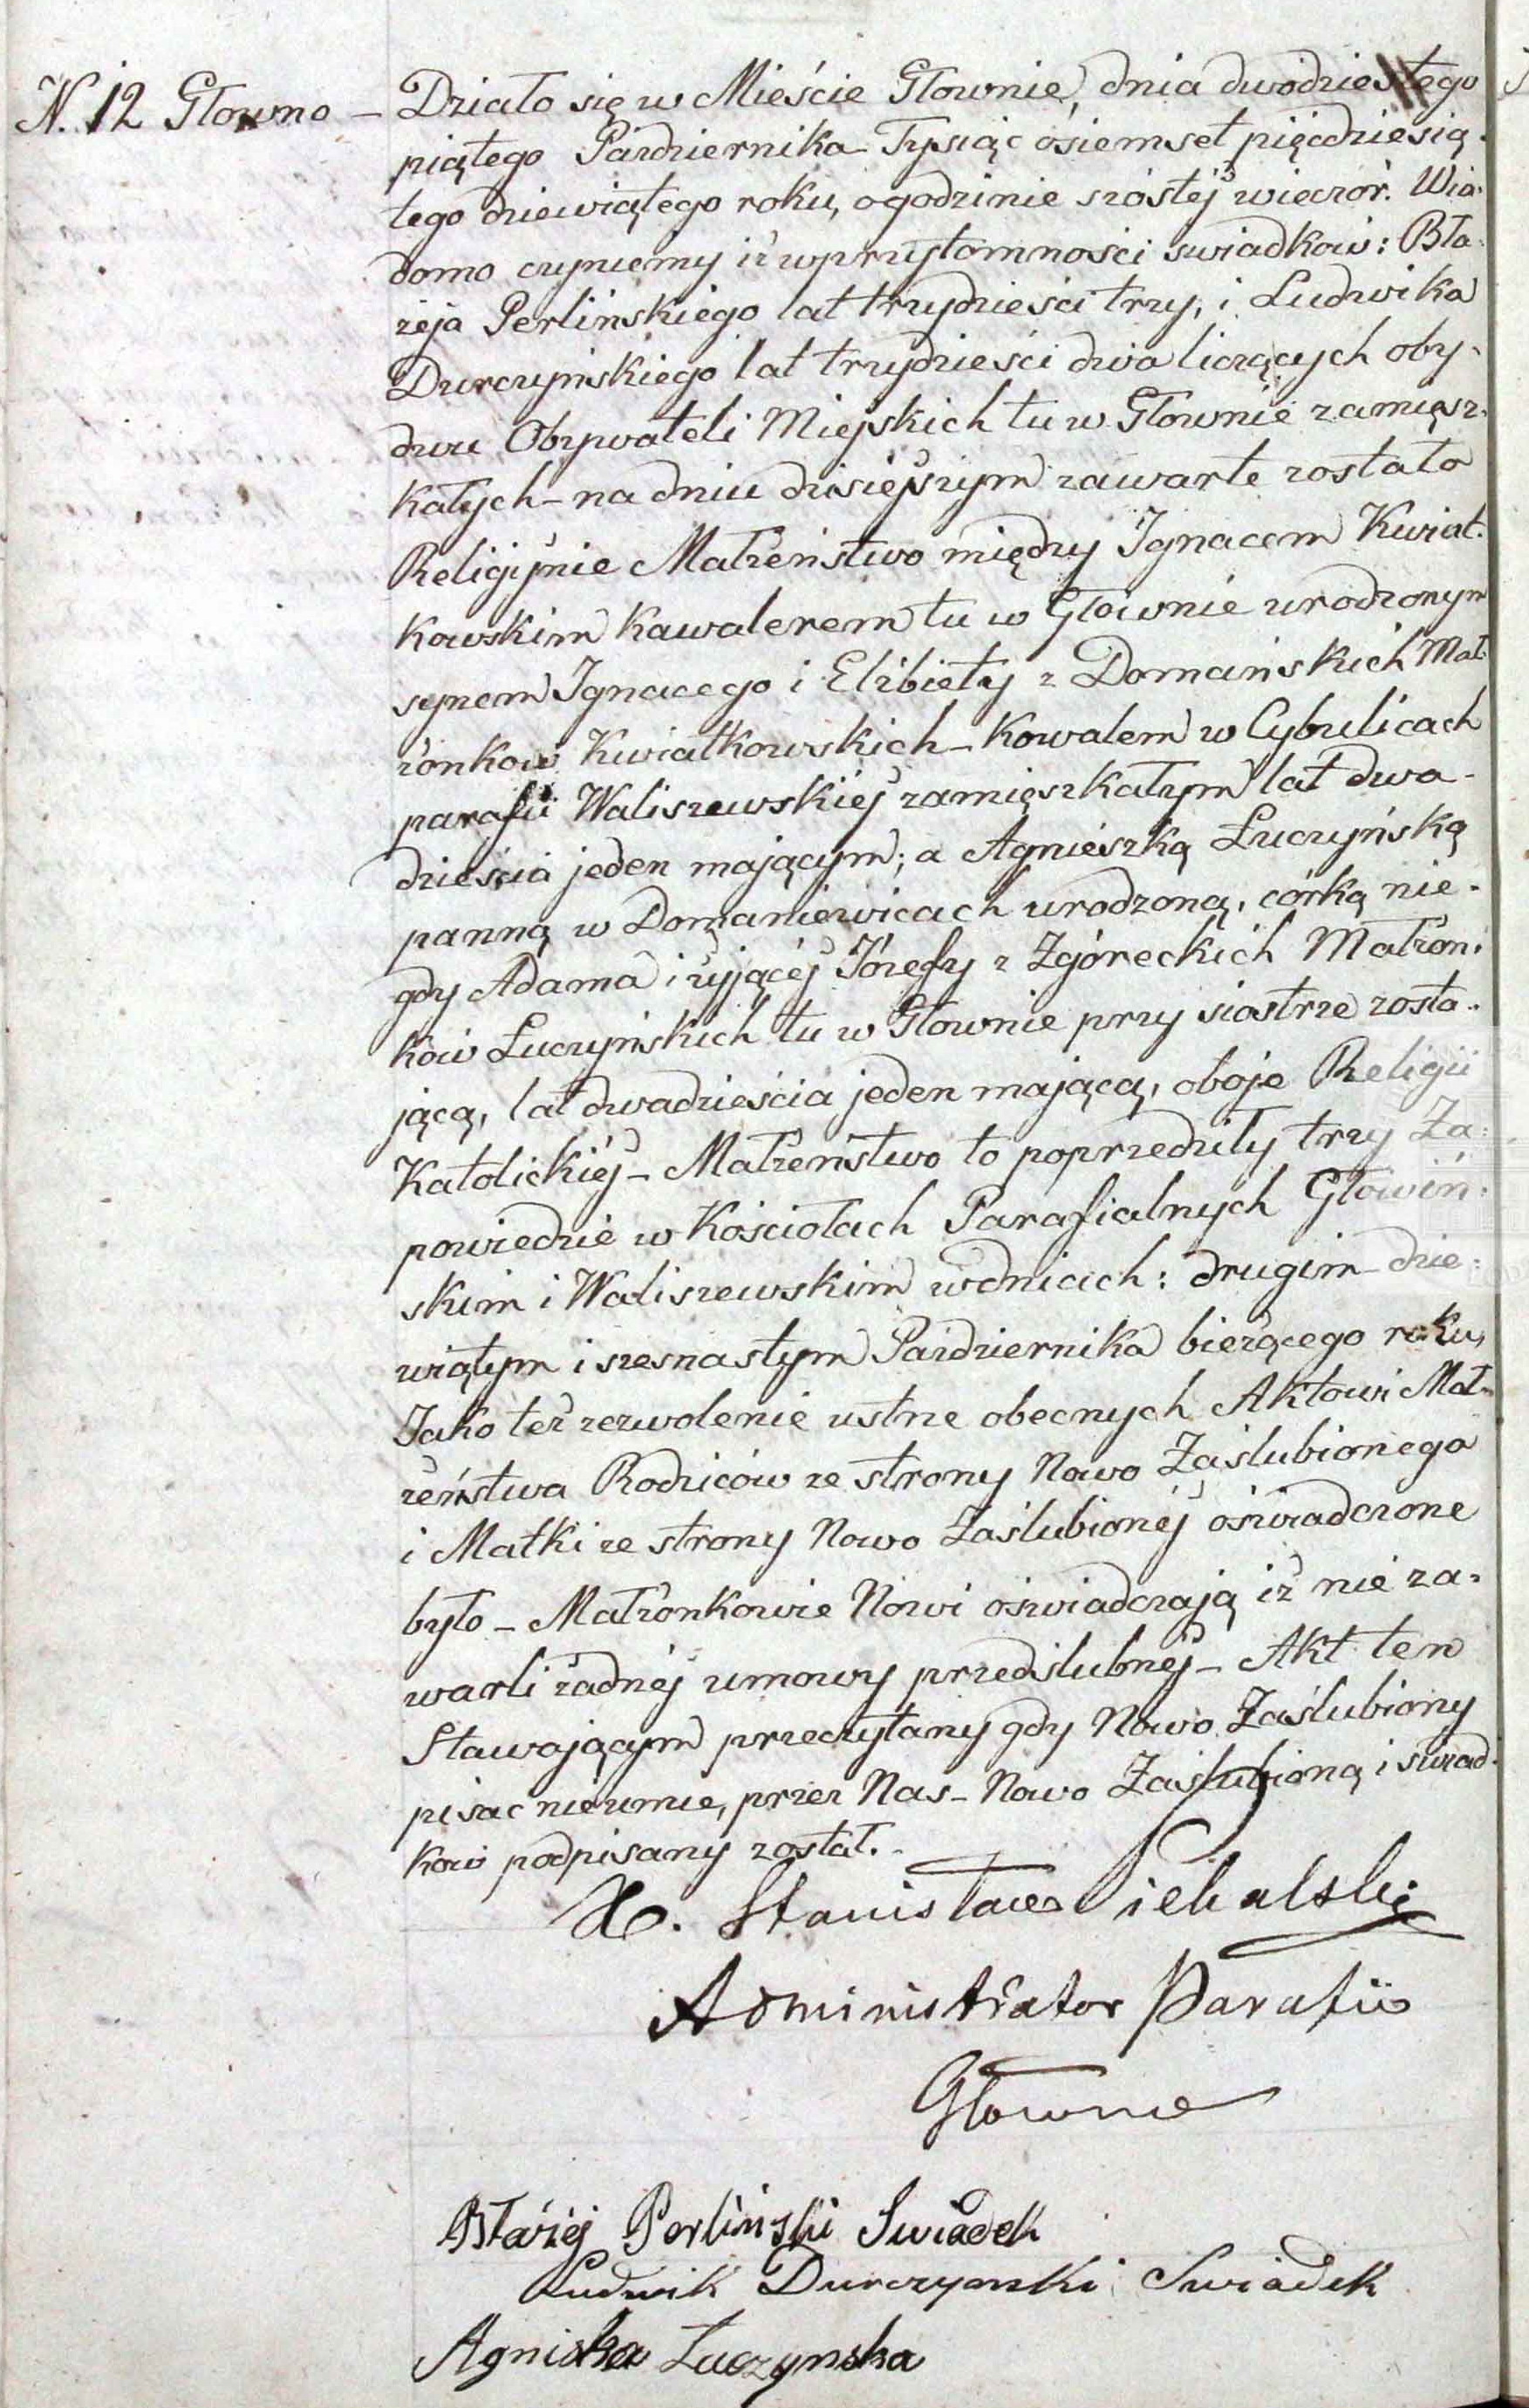 N. 12 Głowno – Działo się w Mieście Głownie, dnia dwódziestego
piątego Października Tysiąc ósiemset pięćdziesią-
tego dziewiątego roku, o godzinie szóstéj wieczór. Wia-
domo czyniemy iż w przytomności swiadków: Bła-
żeja Perlińskiego lat trzydzieści trzy, i Ludwika
Durczyńskiego lat trzydzieści dwa liczących oby-
dwu Obywateli Miejskich tu w Głownie zamięsz-
kałych – na dniu dzisiéjszym zawarte zostało
Religijnie Małżeństwo między Ignacem Kwiat-
kowskim Kawalerem tu w Głownie urodzonym
synem Ignacego i Elżbiety z Domańskich Mał-
żonków Kwiatkowskich – Kowalem w Cybulicach
parafii Waliszewskiéj zamięszkałym lat dwa-
dzieścia jeden mającym; a Agnieszką Łuczyńską
panną w Domaniewicach urodzoną, córką nie-
gdy Adama i żyjącéj Józefy z Zgóreckich Małżon-
ków Łuczyńskich tu w Głownie przy siostrze zosta-
jącą, lat dwadzieścia jeden mającą, oboje Religii
Katolickiéj – Małżeństwo to poprzedziły trzy Za-
powiedzie w Kościołach Parafialnych Głowiń-
skim i Waliszewskim w dniach: drugim – dzie-
wiątym i szesnastym Października bieżącego roku,
Jako też zezwolenie ustne obecnych Aktowi Mał-
żeństwa Rodziców ze strony Nowo Zaślubionego
i Matki ze strony Nowo Zaślubionéj oświadczone
było – Małżonkowie Nowi oświadczają iż nie za-
warli żadnéj umowy przedślubnéj – Akt ten
Stawającym przeczytany gdy Nowo Zaślubiony
pisac nieumie, przez Nas – Nowo Zaślubioną i świad-
ków podpisany został.
X. Stanisław Piekalski
Administrator Parafii
Głowna
Błażéj Perliński Swiadek
Ludwik Durczynski Swiadek
Agniska Łuczynska